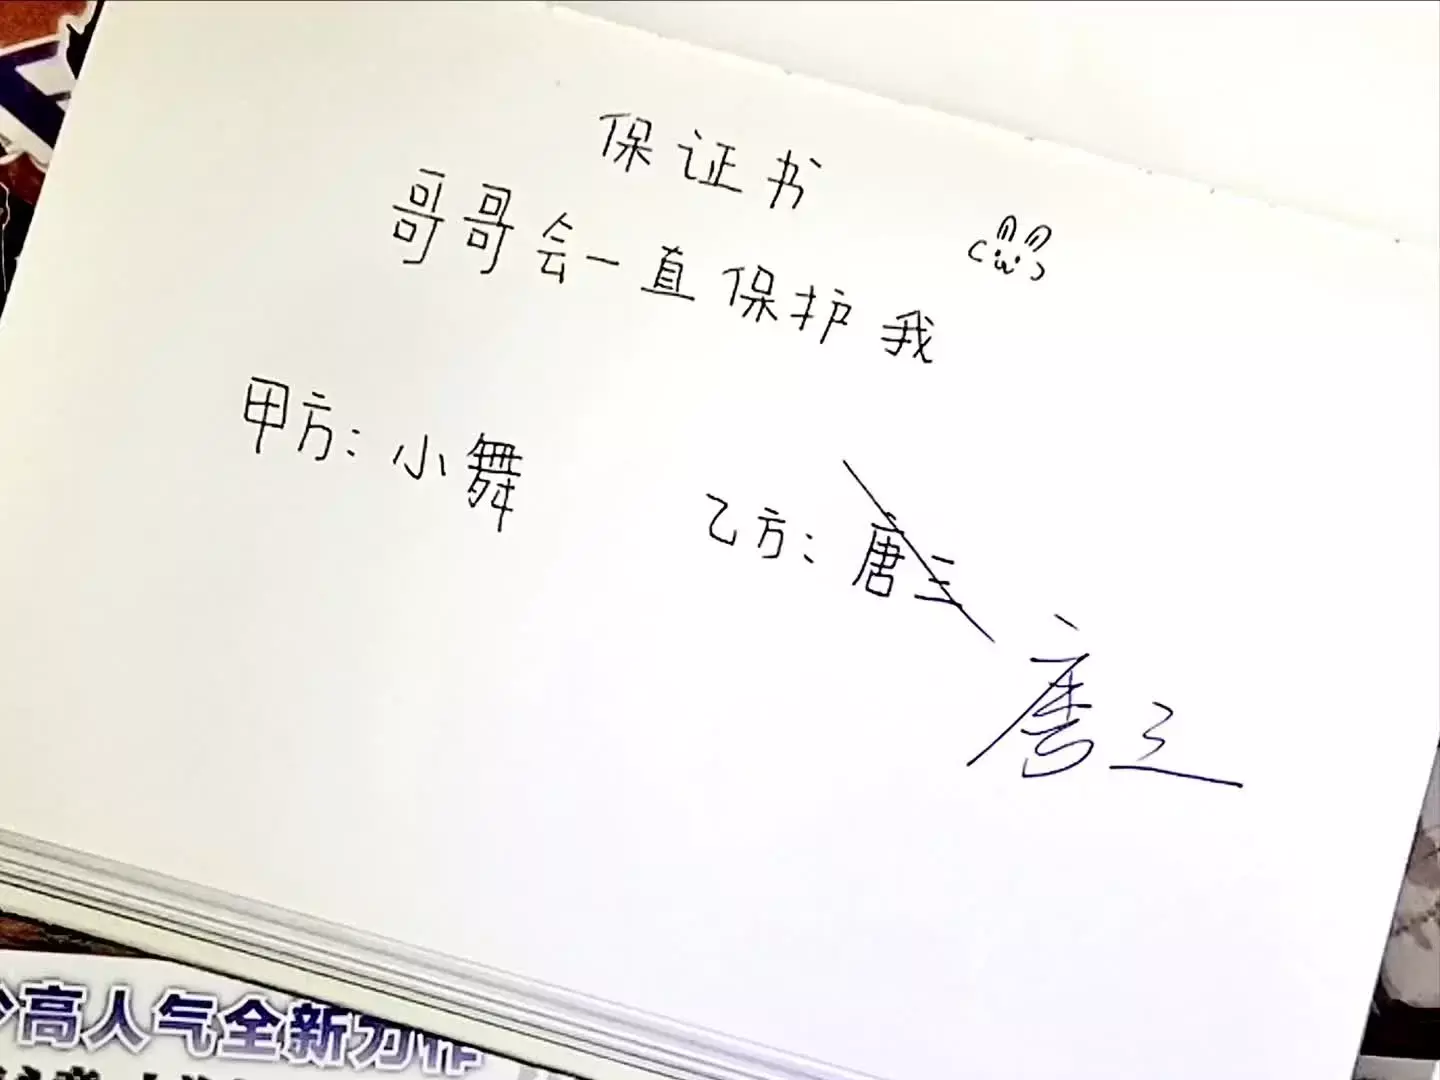 保证书
哥哥会一直保护我
甲方：小舞
乙方：唐三
唐三
高人气全新力作